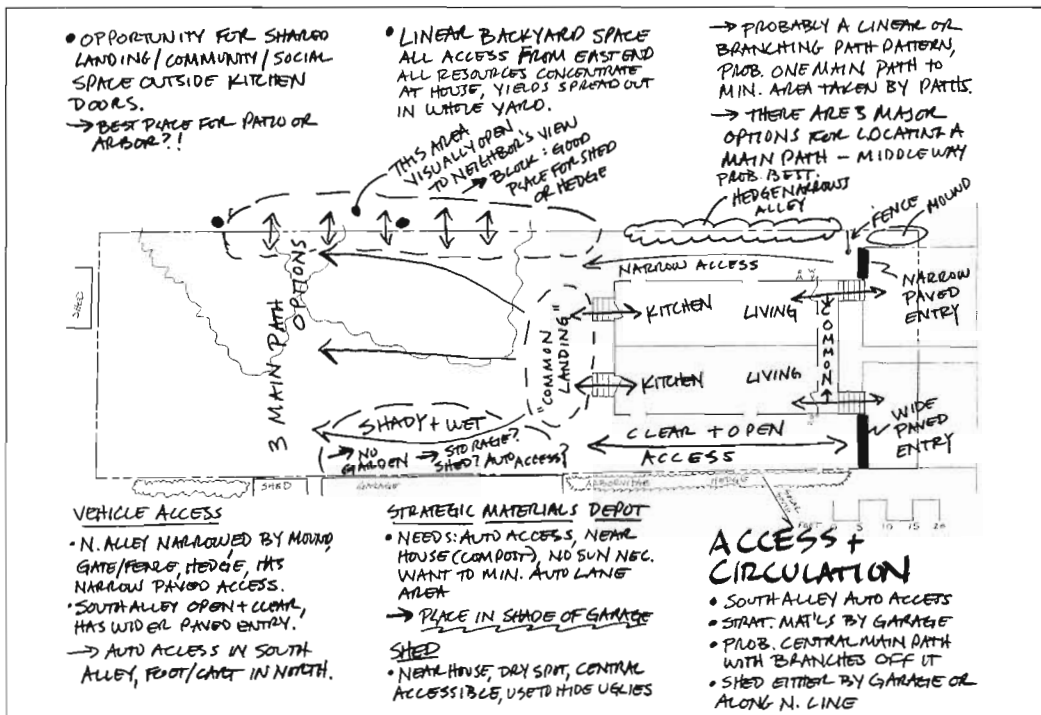 • OPPORTUNITY FOR SHARED
LANDING/COMMUNITY/SOCIAL
SPACE OUTSIDE KITCHEN
DOORS.
→ BEST PLACE FOR PATIO OR
ARBOR?!
• LINEAR BACKYARD SPACE
ALL ACCESS FROM EAST END
ALL RESOURCES CONCENTRATE
AT HOUSE, YIELDS SPREAD OUT
IN WHOLE YARD.
→ PROBABLY A LINEAR OR
BRANCHING PATH PATTERN,
PROB. ONE MAIN PATH TO
MIN. AREA TAKEN BY PATHS.
→ THERE ARE 3 MAJOR
OPTIONS FOR LOCATING A
MAIN PATH - MIDDLE WAY
PROB. BEST.
THIS AREA
VISUALLY OPEN
TO NEIGHBOR'S VIEW
→ BLOCK: GOOD
PLACE FOR SHED
OR HEDGE
HEDGE NARROWS
ALLEY
FENCE
MOUND
NARROW ACCESS
NARROW
PAVED
ENTRY
SHED
3 MAIN PATH
OPTIONS
"COMMON
LANDING"
KITCHEN
LIVING
COMMON
KITCHEN
LIVING
WIDE
PAVED
ENTRY
SHADY + WET
→ NO
GARDEN
→ STORAGE?
SHED? AUTO ACCESS?
CLEAR + OPEN
ACCESS
SHED
GARAGE
ARBORVITAE
HEDGE
FEET 0 5 10 15 20
VEHICLE ACCESS
• N. ALLEY NARROWED BY MOUND,
GATE/FENCE, HEDGE, HAS
NARROW PAVED ACCESS.
• SOUTH ALLEY OPEN + CLEAR,
HAS WIDER PAVED ENTRY.
→ AUTO ACCESS IN SOUTH
ALLEY, FOOT/CART IN NORTH.
STRATEGIC MATERIALS DEPOT
• NEEDS: AUTO ACCESS, NEAR
HOUSE (COMPOST), NO SUN NEC.
WANT TO MIN. AUTO LANE
AREA
→ PLACE IN SHADE OF GARAGE
SHED
• NEAR HOUSE, DRY SPOT, CENTRAL
ACCESSIBLE, USE TO HIDE UGLIES
ACCESS +
CIRCULATION
• SOUTH ALLEY AUTO ACCESS
• STRAT. MAT'LS BY GARAGE
• PROB. CENTRAL MAIN PATH
WITH BRANCHES OFF IT
• SHED EITHER BY GARAGE OR
ALONG N. LINE